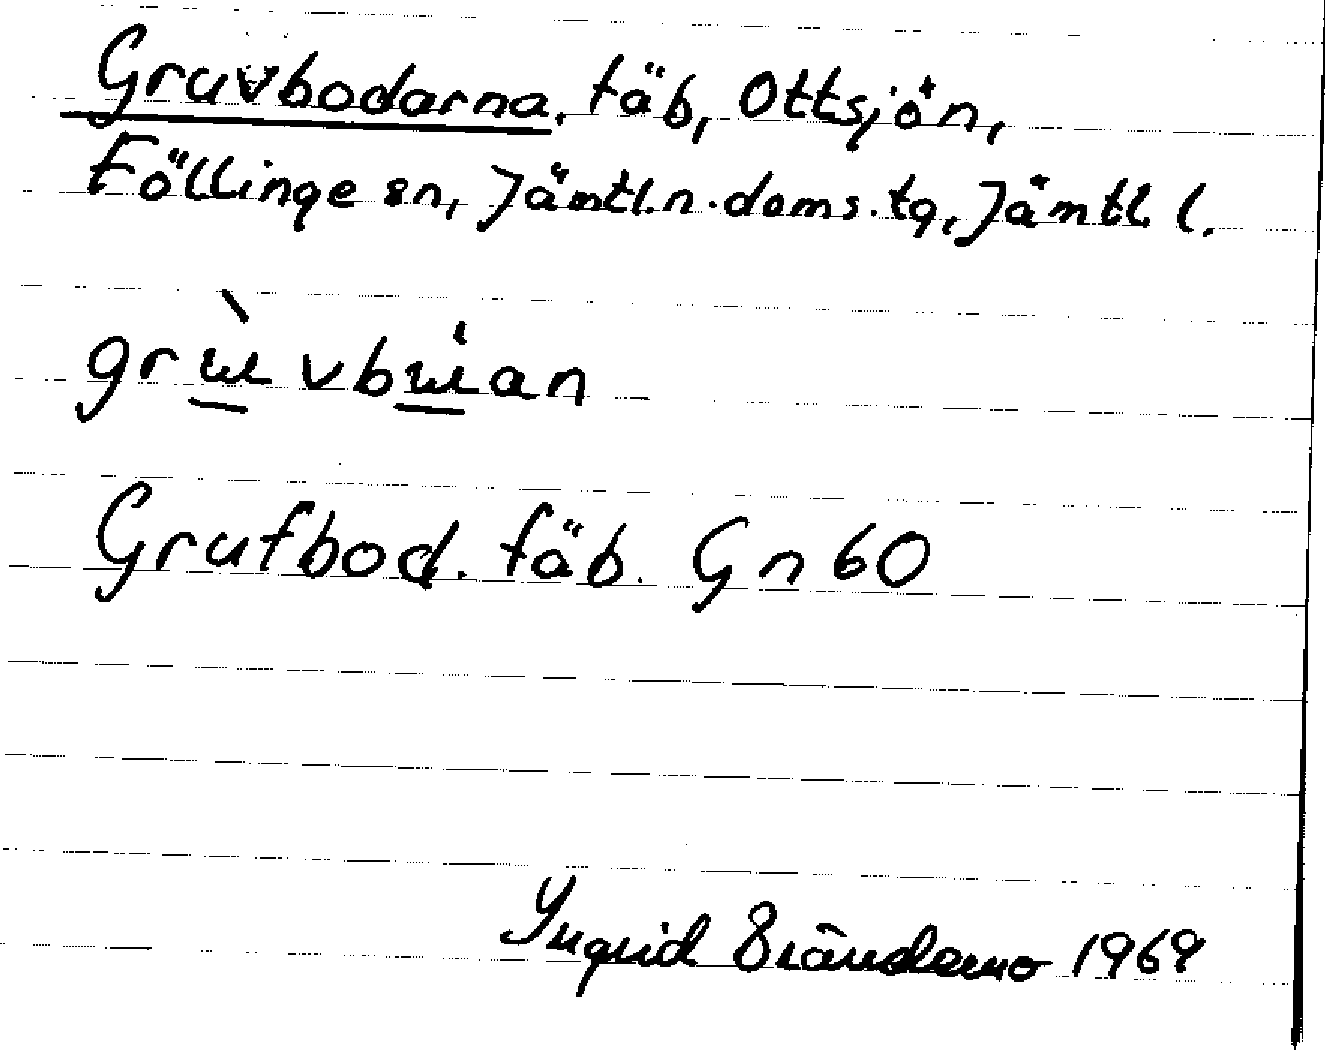 Gruvbodarna, fäb, Ottsjön,
Föllinge sn, Jämtl.n.doms.tg, Jämtl. l.
Grufbod. fäb. Gn 60
Ingrid Brändemo 1969